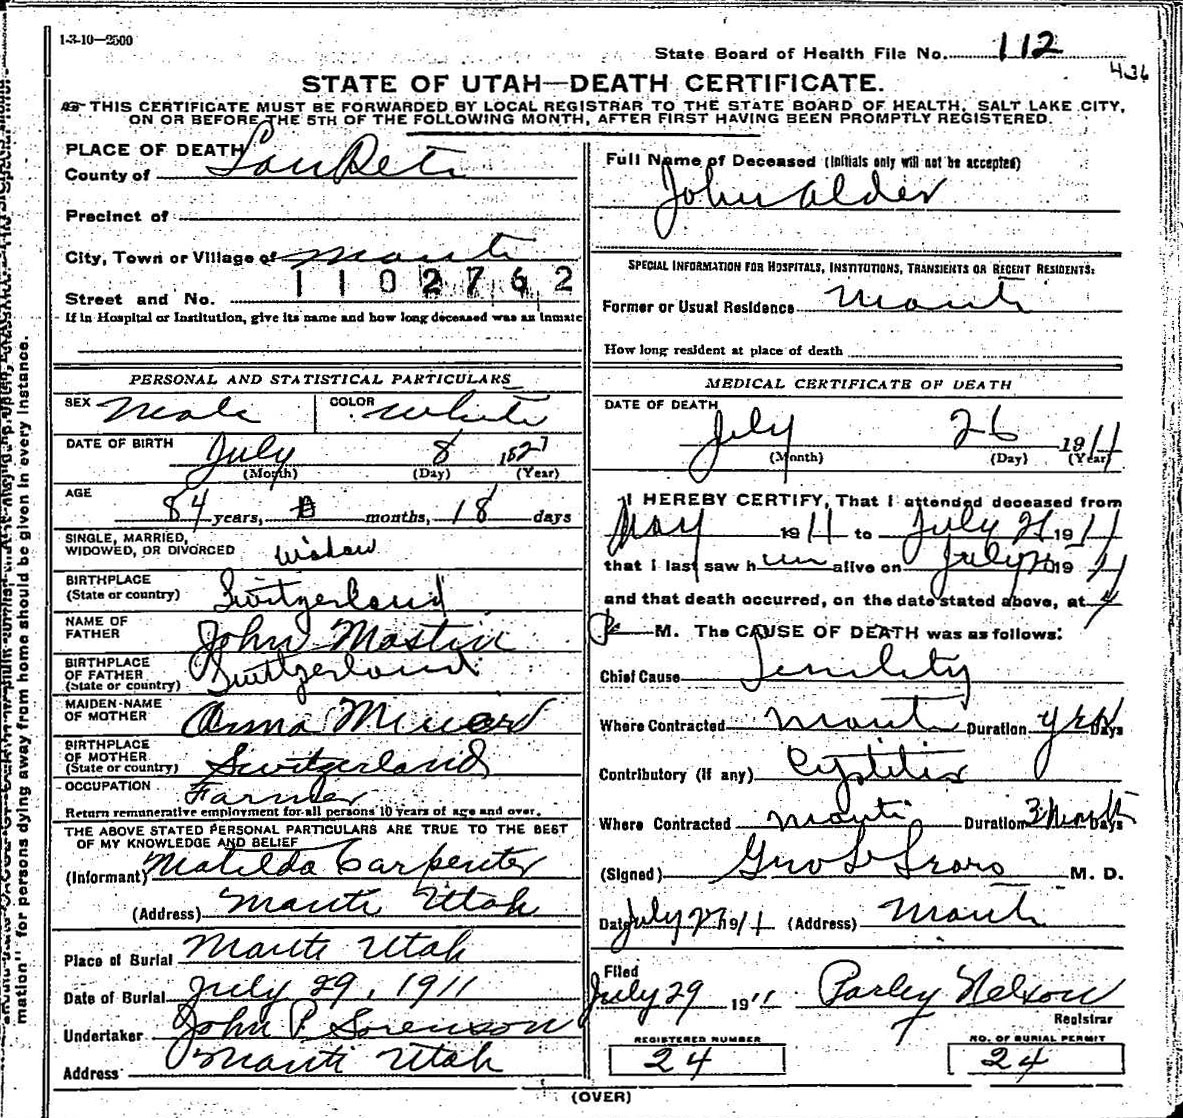 1-3-10—2500
State Board of Health File No. 112
436
STATE OF UTAH—DEATH CERTIFICATE.
THIS CERTIFICATE MUST BE FORWARDED BY LOCAL REGISTRAR TO THE STATE BOARD OF HEALTH, SALT LAKE CITY,
ON OR BEFORE THE 5TH OF THE FOLLOWING MONTH, AFTER FIRST HAVING BEEN PROMPTLY REGISTERED.
PLACE OF DEATH
County of SanPete
Precinct of
City, Town or Village of Manti
1102762
Street and No.
If in Hospital or Institution, give its name and how long deceased was an inmate
PERSONAL AND STATISTICAL PARTICULARS
SEX Male COLOR White
DATE OF BIRTH July 8 1827
(Month) (Day) (Year)
AGE
84 years, 0 months, 18 days
SINGLE, MARRIED,
WIDOWED, OR DIVORCED Widow
BIRTHPLACE
(State or country) Switzerland
NAME OF
FATHER John Mastin
BIRTHPLACE
OF FATHER
(State or country) Switzerland
MAIDEN-NAME
OF MOTHER Anna
BIRTHPLACE
OF MOTHER
(State or country) Switzerland
OCCUPATION Farmer
Return remunerative employment for all persons 10 years of age and over.
THE ABOVE STATED PERSONAL PARTICULARS ARE TRUE TO THE BEST
OF MY KNOWLEDGE AND BELIEF
(Informant) Matilda Carpenter
(Address) Manti Utah
Place of Burial Manti Utah
Date of Burial July 29, 1911
Undertaker John P. Sorenson
Address Manti Utah
Full Name of Deceased (Initials only will not be accepted)
John Alder
SPECIAL INFORMATION FOR HOSPITALS, INSTITUTIONS, TRANSIENTS OR RECENT RESIDENTS:
Former or Usual Residence Manti
How long resident at place of death
MEDICAL CERTIFICATE OF DEATH
DATE OF DEATH
July 26 1911
(Month) (Day) (Year)
I HEREBY CERTIFY, That I attended deceased from
May 1911 to July 21 1911
that I last saw him alive on July 1911
and that death occurred, on the date stated above, at 4
P M. The CAUSE OF DEATH was as follows:
Chief Cause Senility
Where Contracted Manti Duration yrs Days
Contributory (If any) Cystitis
Where Contracted Manti Duration 3 Months Days
(Signed) Geo L M. D.
Date July 27 1911 (Address) Manti
Filed
July 29 1911 Parley Nelson
Registrar
REGISTERED NUMBER
24
NO. OF BURIAL PERMIT
24
(OVER)
mation" for persons dying away from home should be given in every instance.